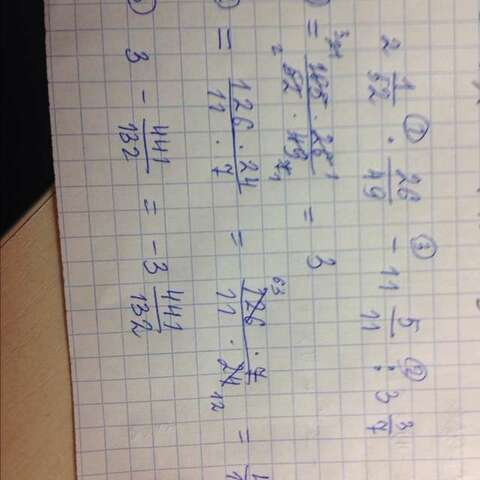 2 1/52 · 26/49 - ③ 11 5/11 : ② 3 3/7
= 105 · 26 / 52 · 49 = 3
= 126 · 24 / 11 · 7 = 126 · 7 / 11 · 24 =
3 - 441/132 = -3 441/132